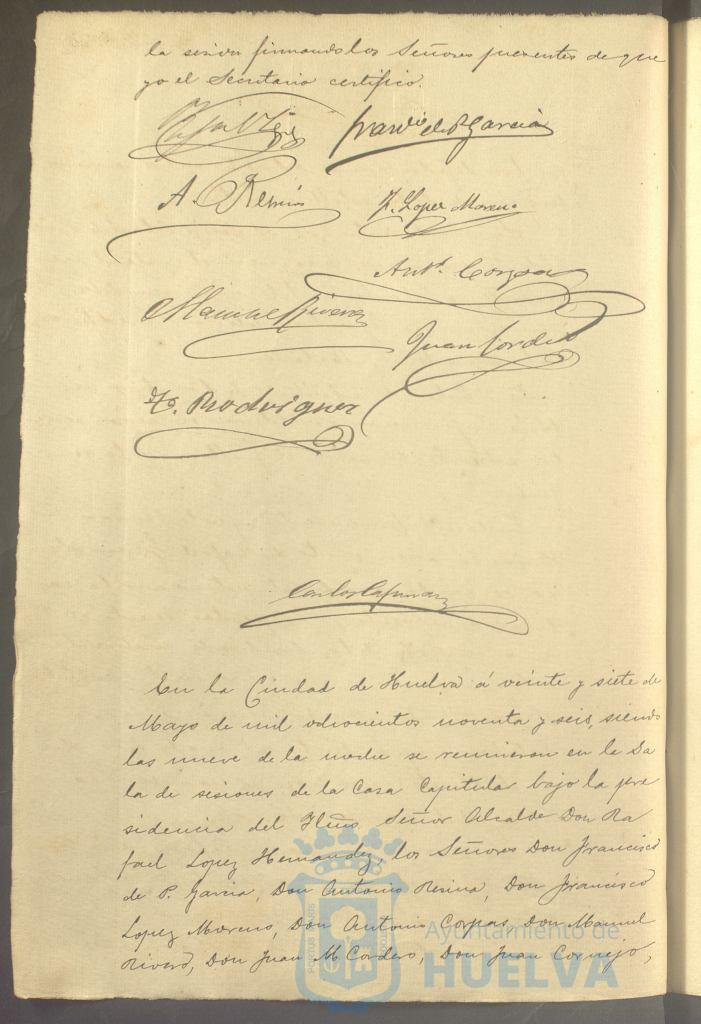 la sesión firmando los Señores presentes de que
yo el Secretario certifico.
Franco de P. Garcia
A. Resina
F. Lopez Moreno
Antº. Corpas
Manuel Rivero
Juan Cordero
F. Rodriguez
En la Ciudad de Huelva á veinte y siete de
Mayo de mil ochocientos noventa y seis, siendo
las nueve de la noche se reunieron en la Sa
la de sesiones de la Casa Capitular bajo la pre
sidencia del Iltmo. Señor Alcalde Don Ra
fael Lopez Hernandez, los Señores Don Francisco
de P. Garcia, Don Antonio Resina, Don Francisco
Lopez Moreno, Don Antonio Corpas, Don Manuel
Rivero, Don Juan M. Cordero, Don Juan Cornejo,
Ayuntamiento de
HUELVA